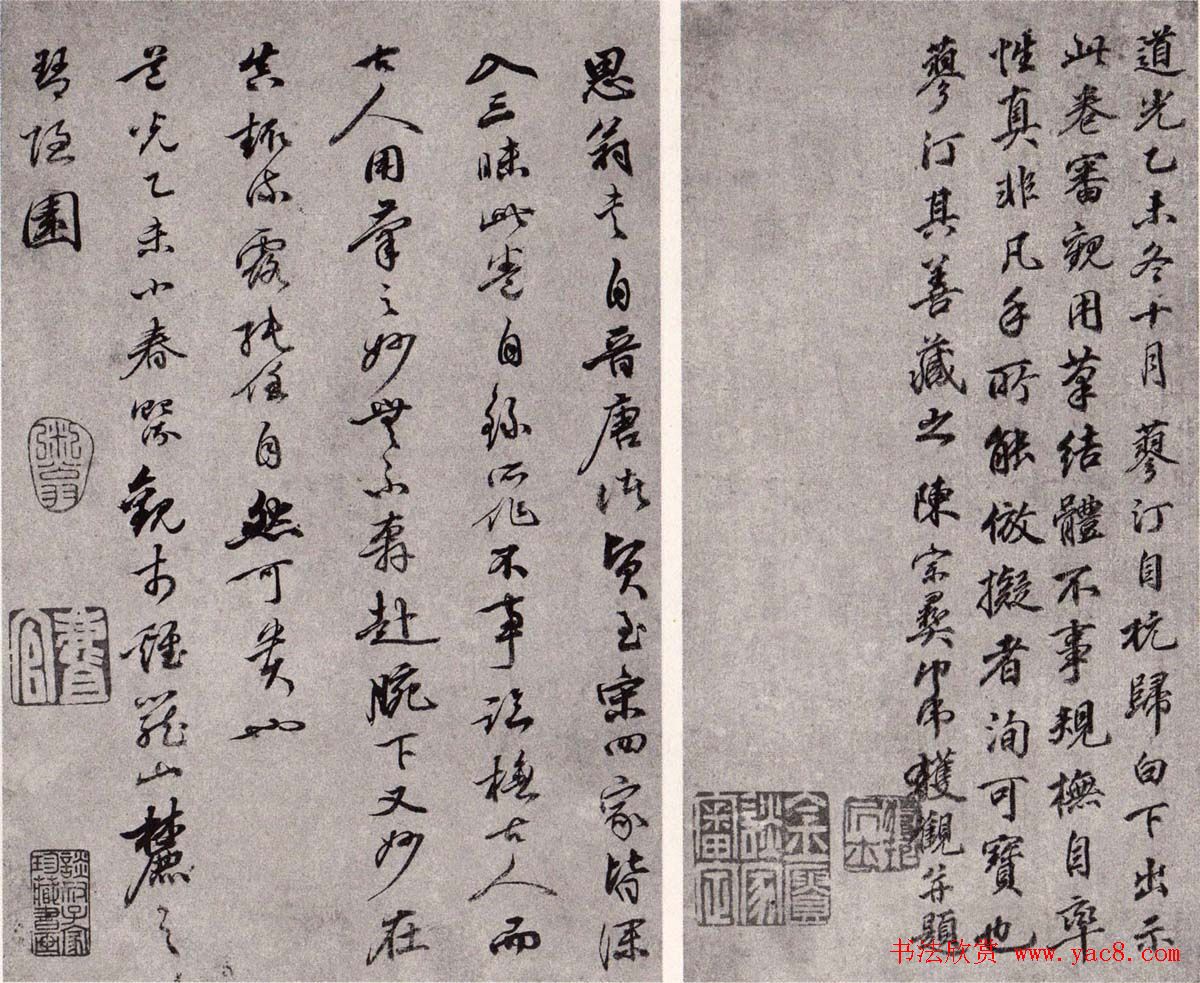 道光乙未冬十月蓼汀自杭歸白下出示
此卷審觀用筆結體不事規橅自率
性真非凡手所能倣擬者洵可寶也
蓼汀其善藏之陳宗彝中弟獲觀并題
思翁書自晉唐以及宋四家皆深
入三昧此卷自錄所作不事臨橅古人而
古人用筆之妙無不奔赴腕下又妙在
真趣流露純任自然可貴也
道光乙未小春獲觀於鍾山麓之
琴隱園
談氏子家珍藏書畫
书法欣赏 www.yac8.com